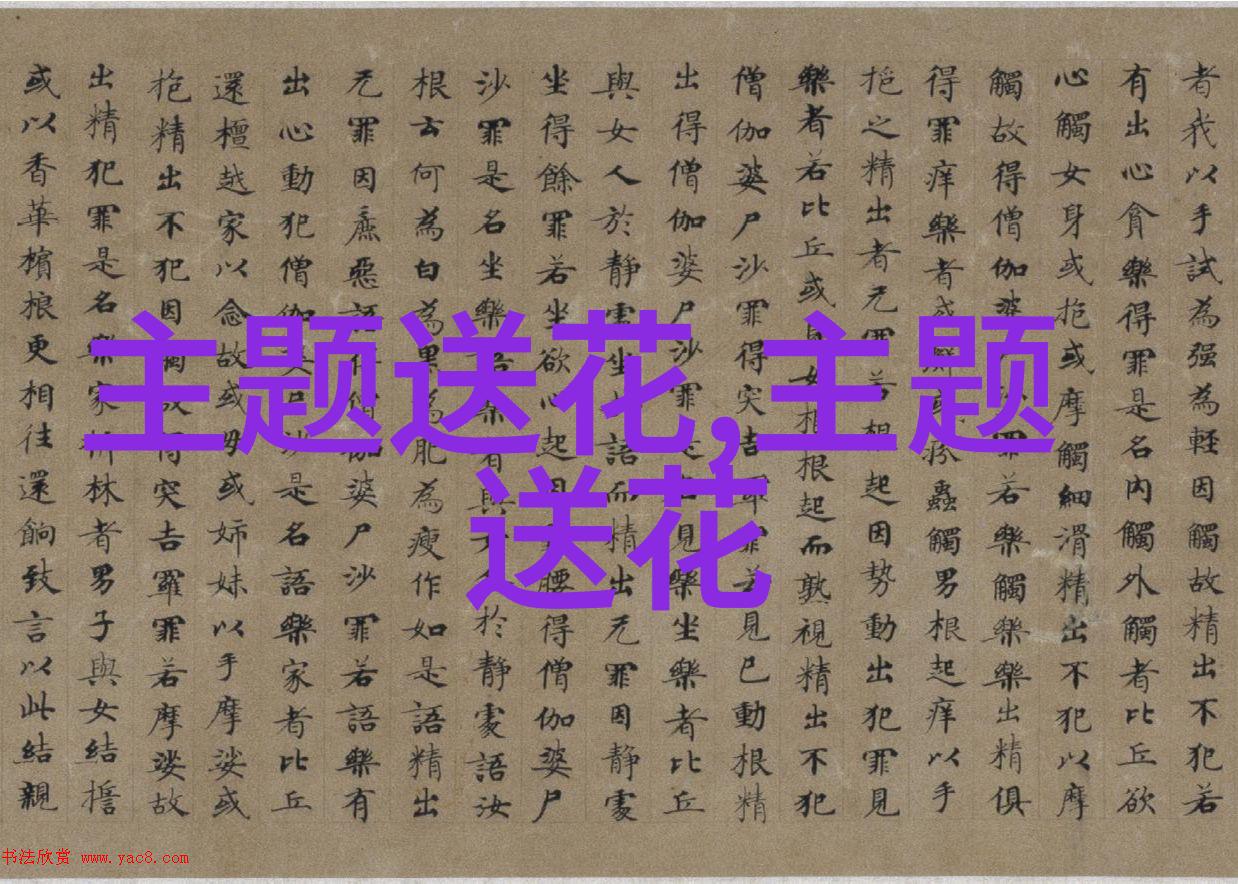 者我以手試為强為輕因觸故精出不犯若
有出心貪樂得罪是名内觸外觸者比丘欲
心觸女身或抱或摩觸細滑精出不犯以摩
觸故得僧伽婆沙罪若樂觸樂樂出精俱
得罪痒樂者或癬或疥蟲觸男根起痒以手
挹之精出者无罪若根起因勢動出犯罪見
樂者若比丘或見女根根起而熟視精出不犯
僧伽婆尸沙罪得突吉羅罪若見已動根精
出得僧伽婆尸沙罪是名見樂坐樂者比丘
與女人於静處坐語而精出无罪因静處
坐得餘罪若坐欲心起因腰得僧伽婆尸
沙罪是名坐樂語樂者與女人於静處語汝
根云何為白為黑為肥為瘦作如是語精出
无罪因麁惡語得僧伽婆尸沙罪若語樂有
出心動犯僧伽婆尸沙是名語樂家者比丘
還檀越家以念故或母或姊妹以手摩娑或
抱精出不犯因觸故得突吉羅罪若摩娑故
出精犯罪是名樂家折林者男子與女結擔
或以香華檳榔更相往還餉致言以此結親
主题送花,主题
送花
书法欣赏 www.yac8.com